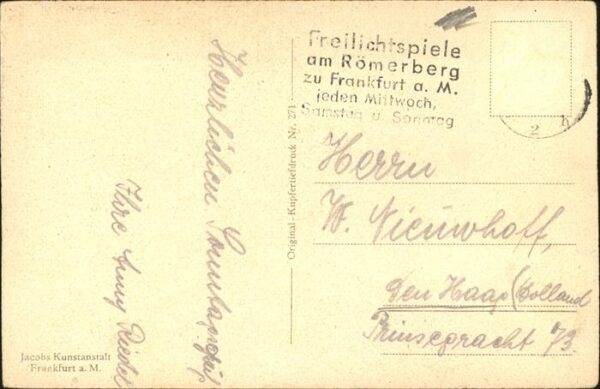 Herzlichen Sonntagsgruß
Ihre Anny Riedel
Jacobs Kunstanstalt
Frankfurt a. M.
Original-Kupfertiefdruck Nr. 271
Freilichtspiele
am Römerberg
zu Frankfurt a. M.
jeden Mittwoch,
Samstag u Sonntag
2 h
Herrn
W. Nieuwhoff,
Den Haag (Holland
Prinsegracht 73